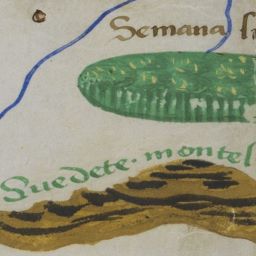 Semana
Suedete · monteſ